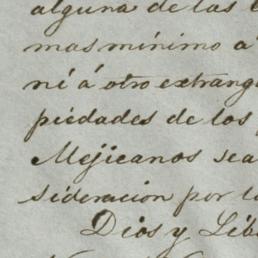 alguna de las
mas mínimo á
ní á otro extrang
piedades de los
Mejicanos sea
sideracion por l
Dios y Lib